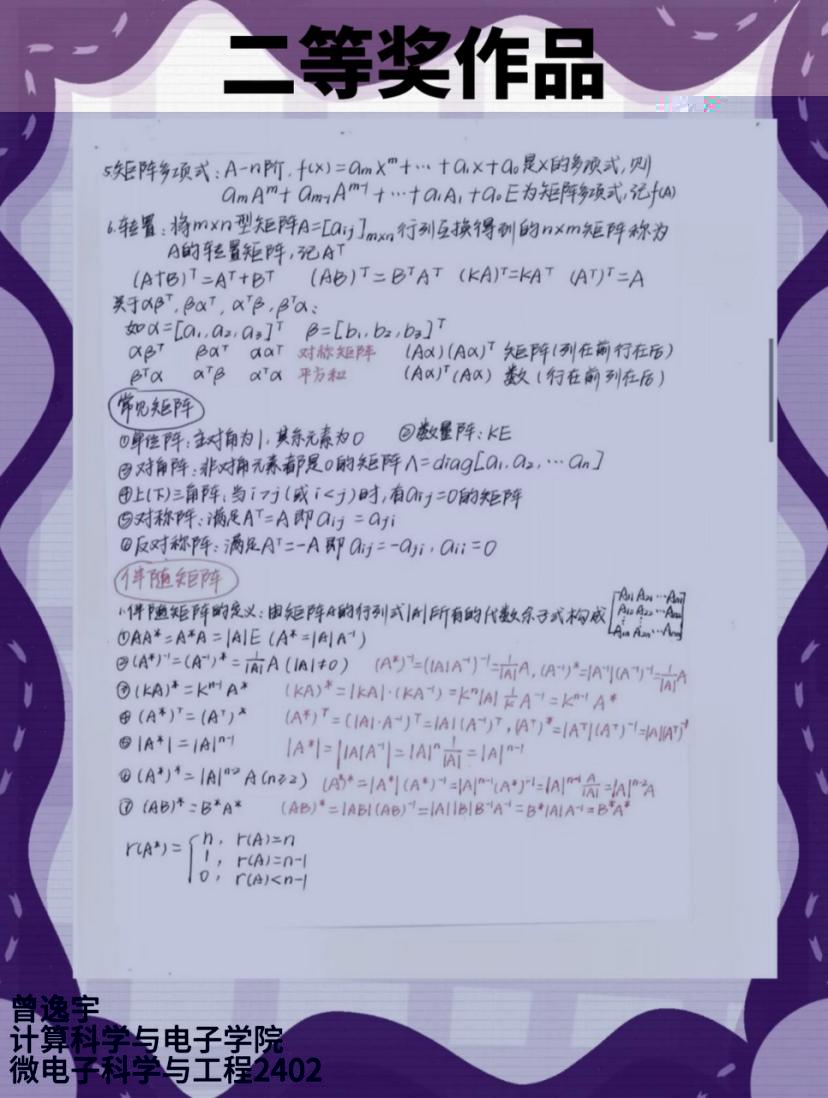 二等奖作品
5.矩阵多项式：A-n阶，f(x)=aₘxᵐ+⋯+a₁x+a₀是x的多项式，则
aₘAᵐ+aₘ₋₁Aᵐ⁻¹+⋯+a₁A₁+a₀E为矩阵多项式，记f(A)
6.转置：将m×n型矩阵A=[aᵢⱼ]ₘₓₙ行列互换得到的n×m矩阵称为
A的转置矩阵，记Aᵀ
(A+B)ᵀ=Aᵀ+Bᵀ (AB)ᵀ=BᵀAᵀ (KA)ᵀ=KAᵀ (Aᵀ)ᵀ=A
关于αβᵀ，βαᵀ，αᵀβ，βᵀα：
如α=[a₁,a₂,a₃]ᵀ β=[b₁,b₂,b₃]ᵀ
αβᵀ βαᵀ ααᵀ 对称矩阵 (Aα)(Aα)ᵀ 矩阵(列在前行在后)
βᵀα αᵀβ αᵀα 平方和 (Aα)ᵀ(Aα) 数(行在前列在后)
常见矩阵
①单位阵：主对角为1，其余元素为0 ②数量阵：KE
③对角阵：非对角元素都是0的矩阵 Λ=diag[a₁,a₂,⋯aₙ]
④上(下)三角阵：当i>j(或i<j)时，有aᵢⱼ=0的矩阵
⑤对称阵：满足Aᵀ=A即aᵢⱼ=aⱼᵢ
⑥反对称阵：满足Aᵀ=-A即aᵢⱼ=-aⱼᵢ，aᵢᵢ=0
伴随矩阵
1.伴随矩阵的定义：由矩阵A的行列式|A|所有的代数余子式构成 [A₁₁ A₂₁ ⋯Aₙ₁ A₁₂ A₂₂ ⋯Aₙ₂ ⋮ A₁ₙ A₂ₙ ⋯Aₙₙ]
①AA*=A*A=|A|E (A*=|A|A⁻¹)
②(A*)⁻¹=(A⁻¹)*=1/|A| A (|A|≠0) (A*)⁻¹=(|A|A⁻¹)⁻¹=1/|A| A, (A⁻¹)*=|A⁻¹|(A⁻¹)⁻¹=1/|A| A
③(KA)*=Kⁿ⁻¹A* (KA)*=|KA|·(KA⁻¹)=Kⁿ|A| 1/K A⁻¹=Kⁿ⁻¹A*
④(A*)ᵀ=(Aᵀ)* (A*)ᵀ=(|A|·A⁻¹)ᵀ=|A|(A⁻¹)ᵀ, (Aᵀ)*=|Aᵀ|(Aᵀ)⁻¹=|A|(Aᵀ)⁻¹
⑤|A*|=|A|ⁿ⁻¹ |A*|=||A|A⁻¹|=|A|ⁿ 1/|A|=|A|ⁿ⁻¹
⑥(A*)*=|A|ⁿ⁻²A(n≥2) (A*)*=|A*|(A*)⁻¹=|A|ⁿ⁻¹(A*)⁻¹=|A|ⁿ⁻¹ A/|A|=|A|ⁿ⁻²A
⑦(AB)*=B*A* (AB)*=|AB|(AB)⁻¹=|A||B|B⁻¹A⁻¹=B*|A|A⁻¹=B*A*
r(A*)={n, r(A)=n
1, r(A)=n-1
0, r(A)<n-1
曾逸宇
计算科学与电子学院
微电子科学与工程2402